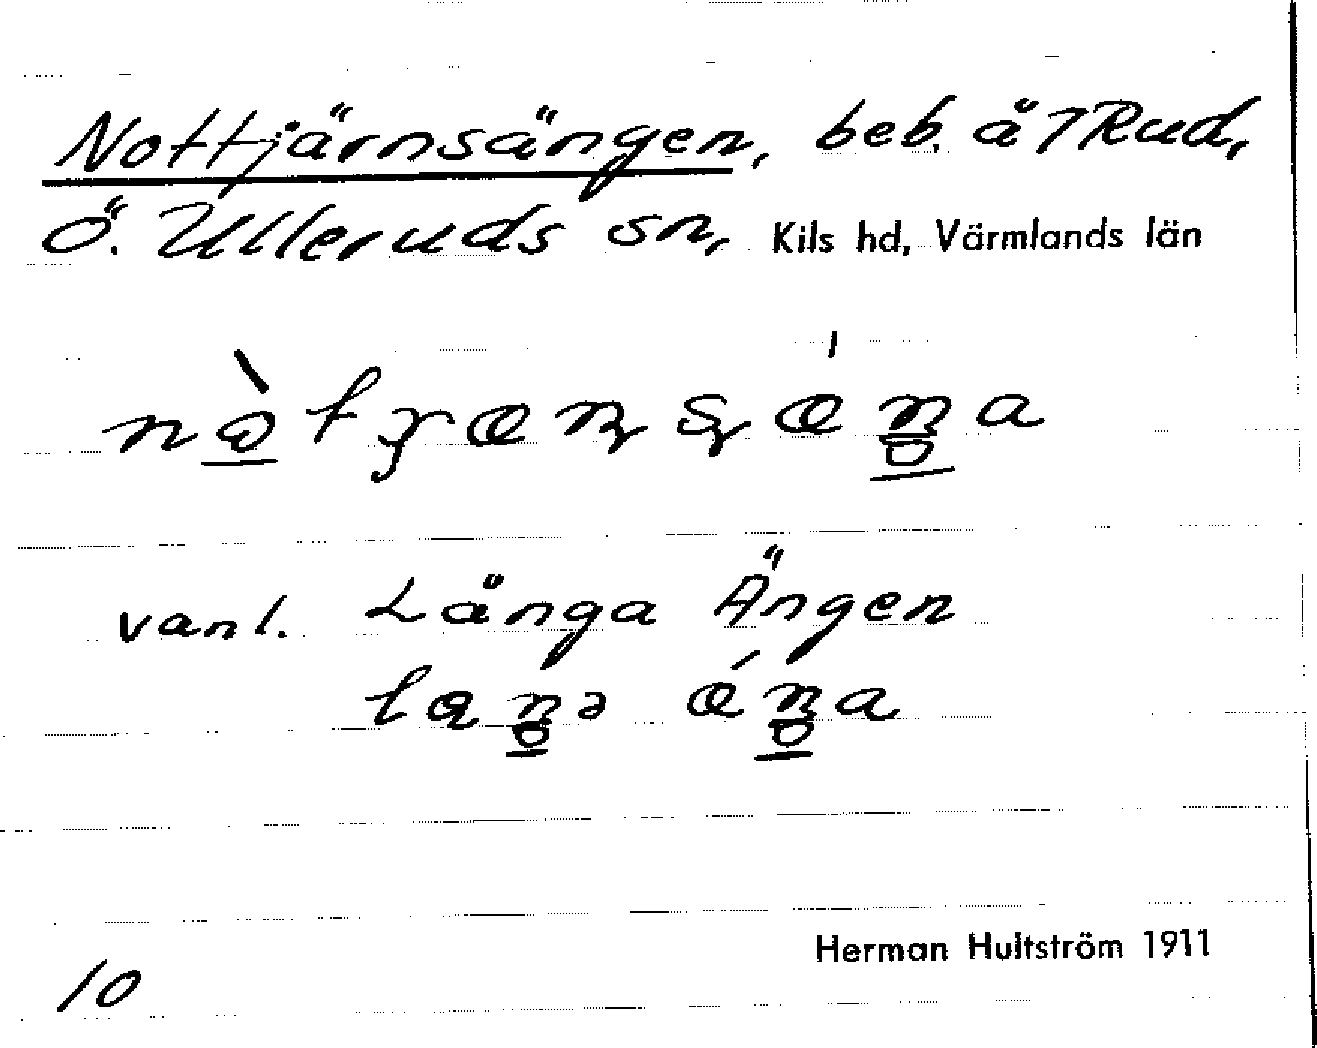 Nottjärnsängen, beb. å 7 Rud,
Ö. Ulleruds sn, Kils hd, Värmlands län
vanl. Långa Ängen
Herman Hultström 1911
10